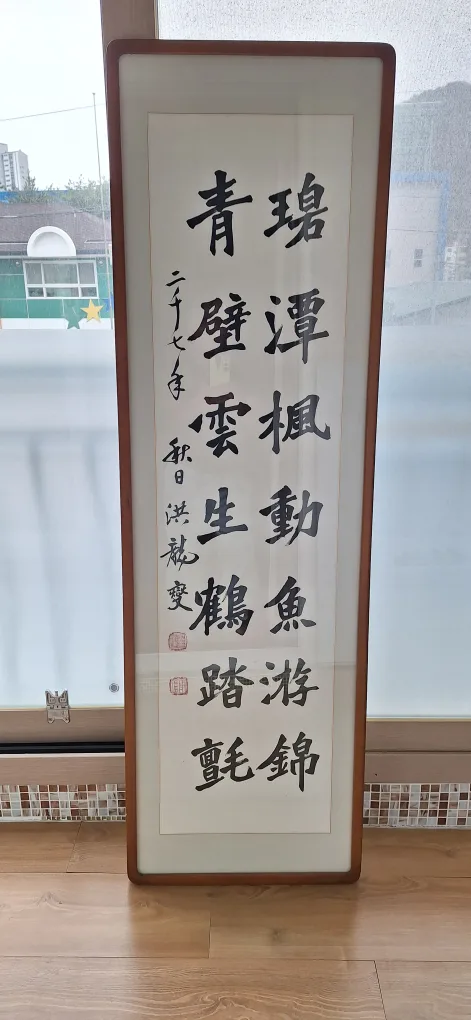 碧潭楓動魚游錦
青壁雲生鶴踏氈
二千七年 秋日 洪龍燮